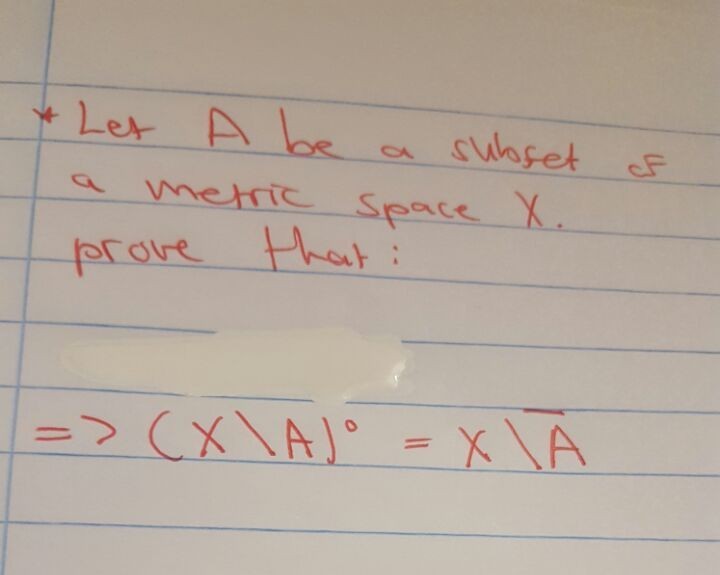 * Let A be a subset of
a metric space X.
prove that :
=> (X \ A)° = X \ A̅